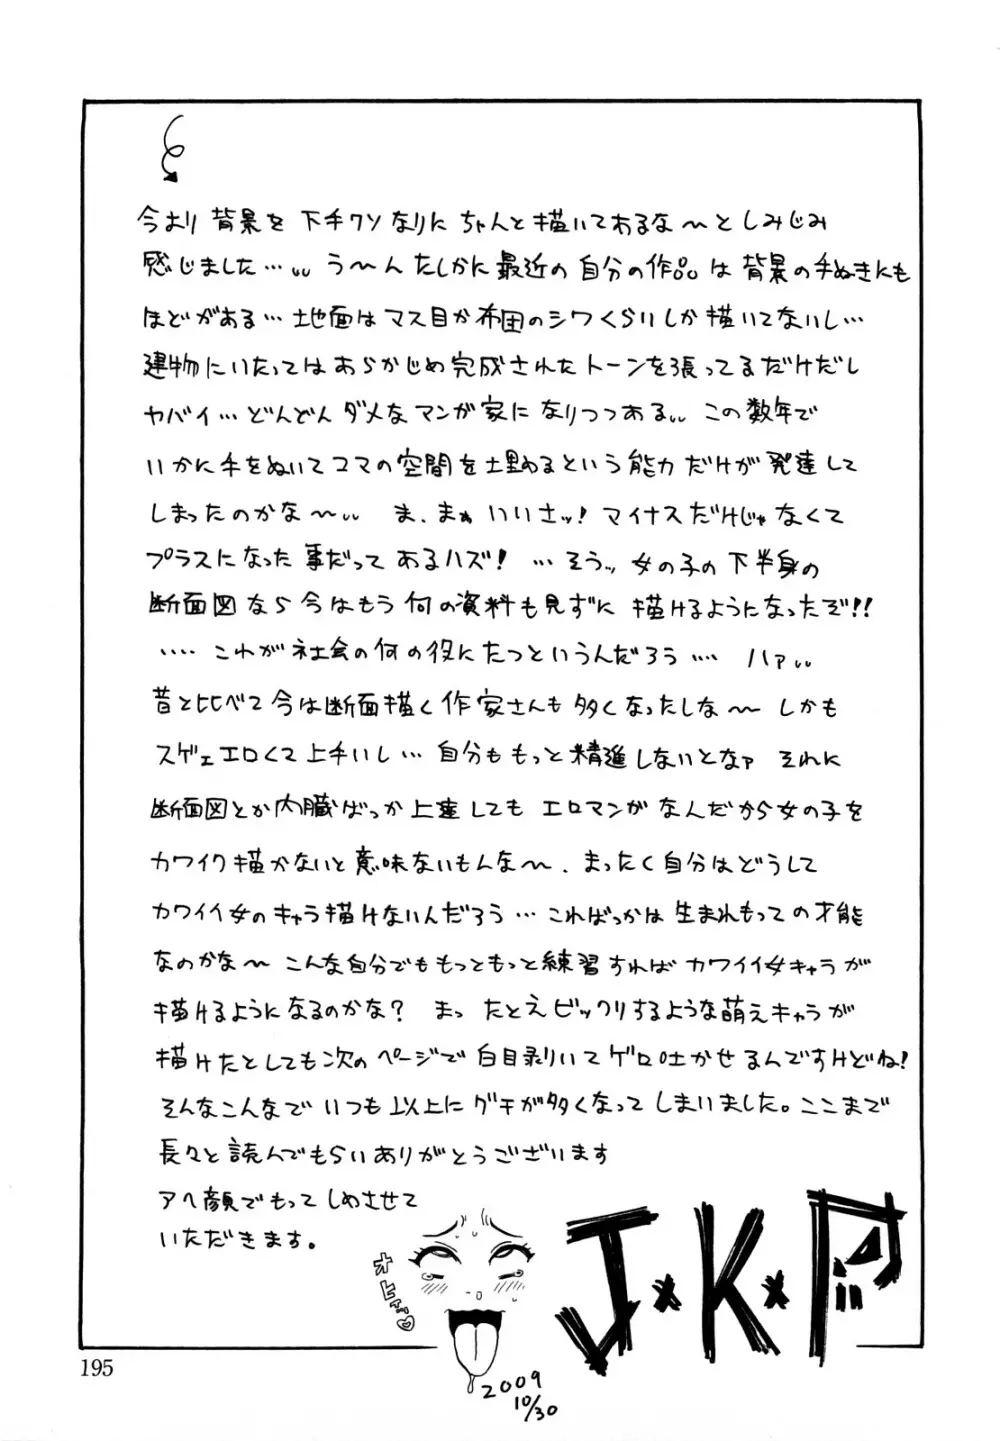 今より背景を下手クソなりにちゃんと描いてあるな〜としみじみ
感じました…,, う〜んたしかに最近の自分の作品は背景の手ぬきにも
ほどがある… 地面はマス目か布団のシワくらいしか描いてないし…
建物にいたってはあらかじめ完成されたトーンを張ってるだけだし
ヤバイ… どんどんダメなマンガ家になりつつある,, この数年で
いかに手をぬいてコマの空間を埋めるという能力だけが発達して
しまったのかな〜,, ま、まぁいいさッ! マイナスだけじゃなくて
プラスになった事だってあるハズ! …そうッ女の子の下半身の
断面図なら今はもう何の資料も見ずに描けるようになったぞ!!
…… これが社会の何の役にたつというんだろう…… ハァ,,
昔と比べて今は断面描く作家さんも多くなったしな〜 しかも
スゲェエロくて上手いし… 自分ももっと精進しないとなァ それに
断面図とか内臓ばっか上達してもエロマンガなんだから女の子を
カワイク描かないと意味ないもんな〜、まったく自分はどうして
カワイイ女のキャラ描けないんだろう… こればっかは生まれもっての才能
なのかな〜 こんな自分でももっともっと練習すればカワイイ女キャラが
描けるようになるのかな? まっ たとえビックリするような萌えキャラが
描けたとしても次のページで白目剥いてゲロ吐かせるんですけどね!
そんなこんなでいつも以上にグチが多くなってしまいました。ここまで
長々と読んでもらいありがとうございます
アヘ顔でもってしめさせて
いただきます。
オヒョ♡
J★K★P!!
2009
10/30
195